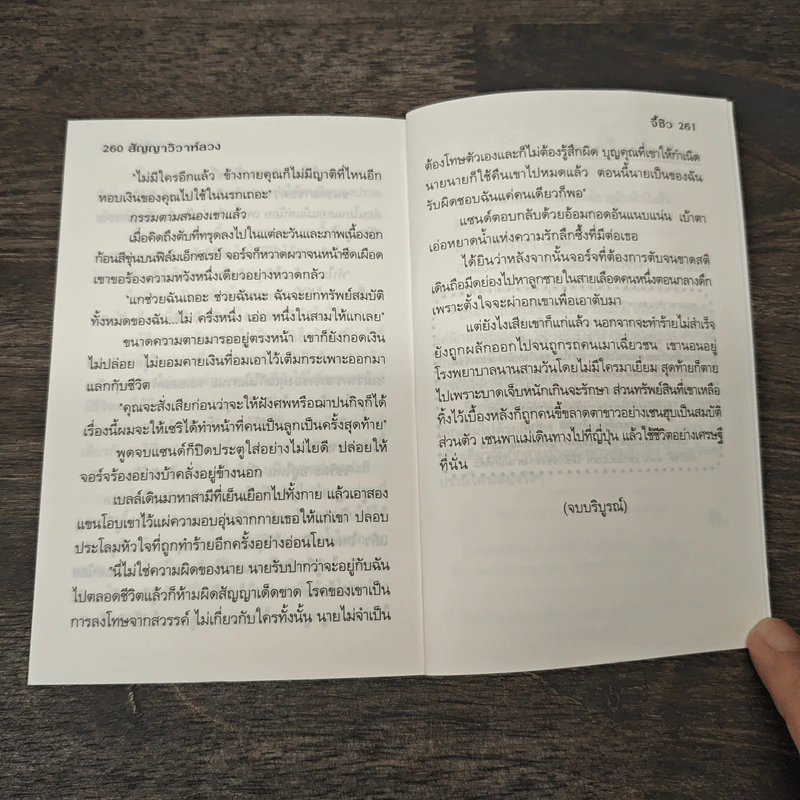 260 สัญญาวิวาห์ลวง
"ไม่มีใครอีกแล้ว ข้างกายคุณก็ไม่มีญาติที่ไหนอีก
หอบเงินของคุณไปใช้ในนรกเถอะ"
กรรมตามสนองเขาแล้ว
เมื่อคิดถึงตับที่ทรุดลงไปในแต่ละวันและภาพเนื้องอก
ก้อนสีขุ่นบนฟิล์มเอ็กซเรย์ จอร์จก็หวาดผวาจนหน้าซีดเผือด
เขาขอร้องความหวังหนึ่งเดียวอย่างหวาดกลัว
"แกช่วยฉันเถอะ ช่วยฉันนะ ฉันจะยกทรัพย์สมบัติ
ทั้งหมดของฉัน...ไม่ ครึ่งหนึ่ง เอ่อ หนึ่งในสามให้แกเลย"
ขนาดความตายมารออยู่ตรงหน้า เขาก็ยังกอดเงิน
ไม่ปล่อย ไม่ยอมคายเงินที่อมเอาไว้เต็มกระเพาะออกมา
แลกกับชีวิต
"คุณจะสั่งเสียก่อนว่าจะให้ฝังศพหรือฌาปนกิจก็ได้
เรื่องนี้ผมจะให้เซริได้ทำหน้าที่คนเป็นลูกเป็นครั้งสุดท้าย"
พูดจบแซนด์ก็ปิดประตูใส่อย่างไม่ไยดี ปล่อยให้
จอร์จร้องอย่างบ้าคลั่งอยู่ข้างนอก
เบลล์เดินมาหาสามีที่เย็นเยือกไปทั้งกาย แล้วเอาสอง
แขนโอบเขาไว้แผ่ความอบอุ่นจากกายเธอให้แก่เขา ปลอบ
ประโลมหัวใจที่ถูกทำร้ายอีกครั้งอย่างอ่อนโยน
"นี่ไม่ใช่ความผิดของนาย นายรับปากว่าจะอยู่กับฉัน
ไปตลอดชีวิตแล้วก็ห้ามผิดสัญญาเด็ดขาด โรคของเขาเป็น
การลงโทษจากสวรรค์ ไม่เกี่ยวกับใครทั้งนั้น นายไม่จำเป็น
จี้ชิว 261
ต้องโทษตัวเองและก็ไม่ต้องรู้สึกผิด บุญคุณที่เขาให้กำเนิด
นายนายก็ใช้คืนเขาไปหมดแล้ว ตอนนี้นายเป็นของฉัน
รับผิดชอบฉันแค่คนเดียวก็พอ"
แซนด์ตอบกลับด้วยอ้อมกอดอันแนบแน่น เบ้าตา
เอ่อหยาดน้ำแห่งความรักลึกซึ้งที่มีต่อเธอ
ได้ยินว่าหลังจากนั้นจอร์จที่ต้องการตับจนขาดสติ
เดินถือมีดย่องไปหาลูกชายในสายเลือดคนหนึ่งตอนกลางดึก
เพราะตั้งใจจะผ่าอกเขาเพื่อเอาตับมา
แต่ยังไงเสียเขาก็แก่แล้ว นอกจากจะทำร้ายไม่สำเร็จ
ยังถูกผลักออกไปจนถูกรถคนเมาเฉี่ยวชน เขานอนอยู่
โรงพยาบาลนานสามวันโดยไม่มีใครมาเยี่ยม สุดท้ายก็ตาย
ไปเพราะบาดเจ็บหนักเกินจะรักษา ส่วนทรัพย์สินที่เขาเหลือ
ทิ้งไว้เบื้องหลังก็ถูกคนขี้ขลาดตาขาวอย่างเซนฮุบเป็นสมบัติ
ส่วนตัว เซนพาแม่เดินทางไปที่ญี่ปุ่น แล้วใช้ชีวิตอย่างเศรษฐี
ที่นั่น
(จบบริบูรณ์)